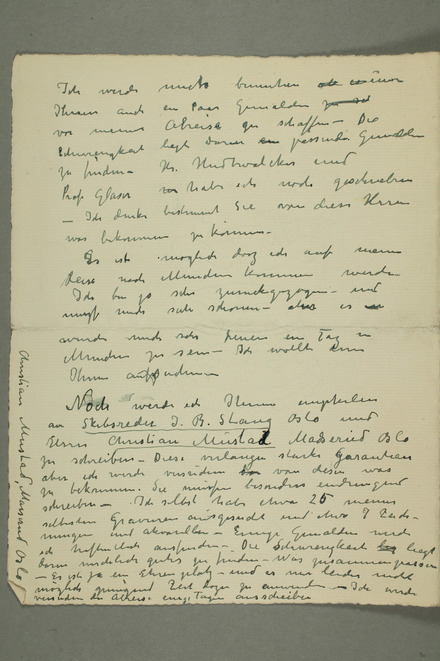 Ich werde mich bemühen
Ihnen auch ein Paar Gemälden
vor meiner Abreise zu schaffen – Die
Schwierigkeit liegt darin passende Gemälden
zu finden – Hr. Hudtwalcker und
Prof. Glaser habe ich noch geschrieben
– Ich denke bestimmt Sie von diese Herren
was bekommen zu können –
Es ist möglich dass ich auf meine
Reise nach München kommen werde
Ich bin ja sehr zurückgezogen – und
muss mich sehr schonen – aber es
würde mich sehr freuen ein Tag in
München zu sein – Ich wollte dann
Ihnen aufsuchen
Noch werde ich Ihnen empfehlen
an Skibsreder J. B. Stang Oslo und
Herrn Christian Mustad Oslo
zu schreiben – Diese verlangen starke Garantien
aber ich werde versuchen von diese was
zu bekommen. Sie müssen besonders eindringend
schreiben – Ich selbst habe etwa 25 meine
selbsten Gravuren ausgesucht und etwa 7 Zeich-
nungen und akvarellen – Einige Gemälden werde
ich hoffentlich ausfinden – Die Schwierigkeit liegt
darin gutes zu finden – Was zusammen passen
– Es ist ja ein Ehrenplatz – und es mir leider nicht
möglich genügend Zeit dazu zu anwenden – Ich werde
versuchen die Abreise einige Tagen
Christian Mustad, Oslo